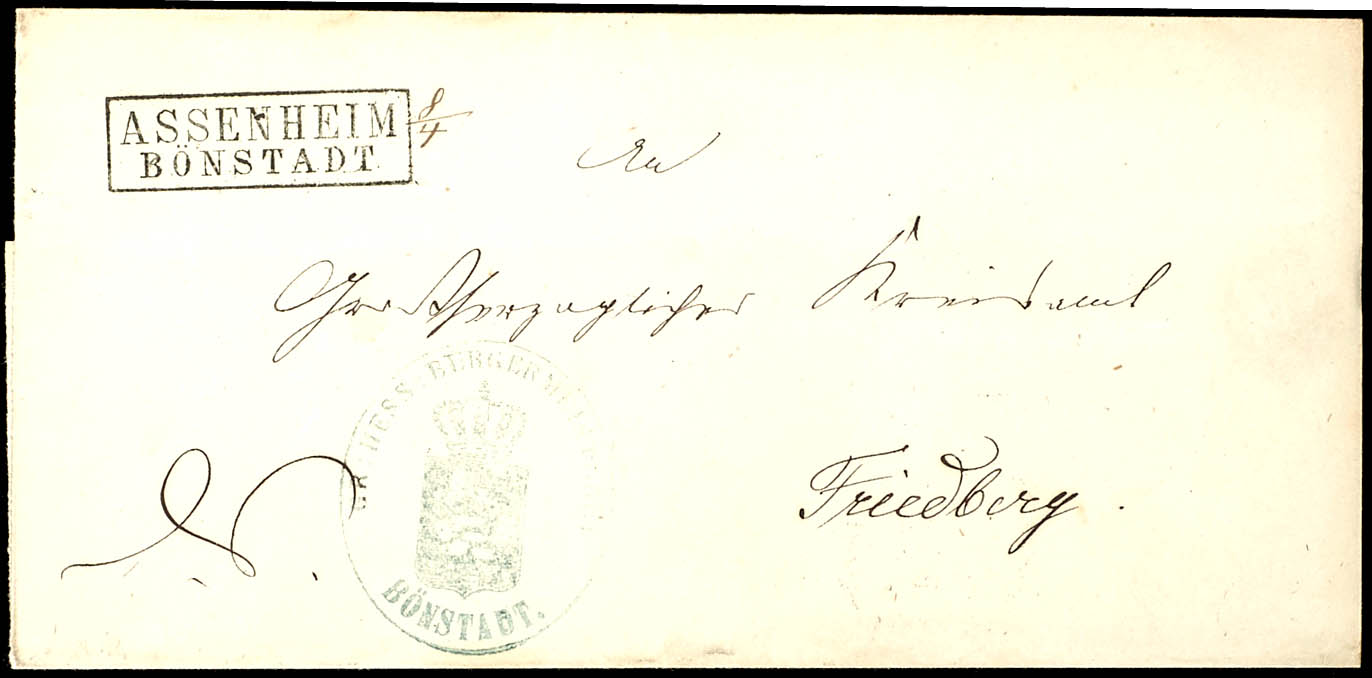 ASSENHEIM
BÖNSTADT
8/4
An
Großherzogliches Kreisamt
Friedberg.
HESS. BÜRGERMEISTEREI
BÖNSTADT.